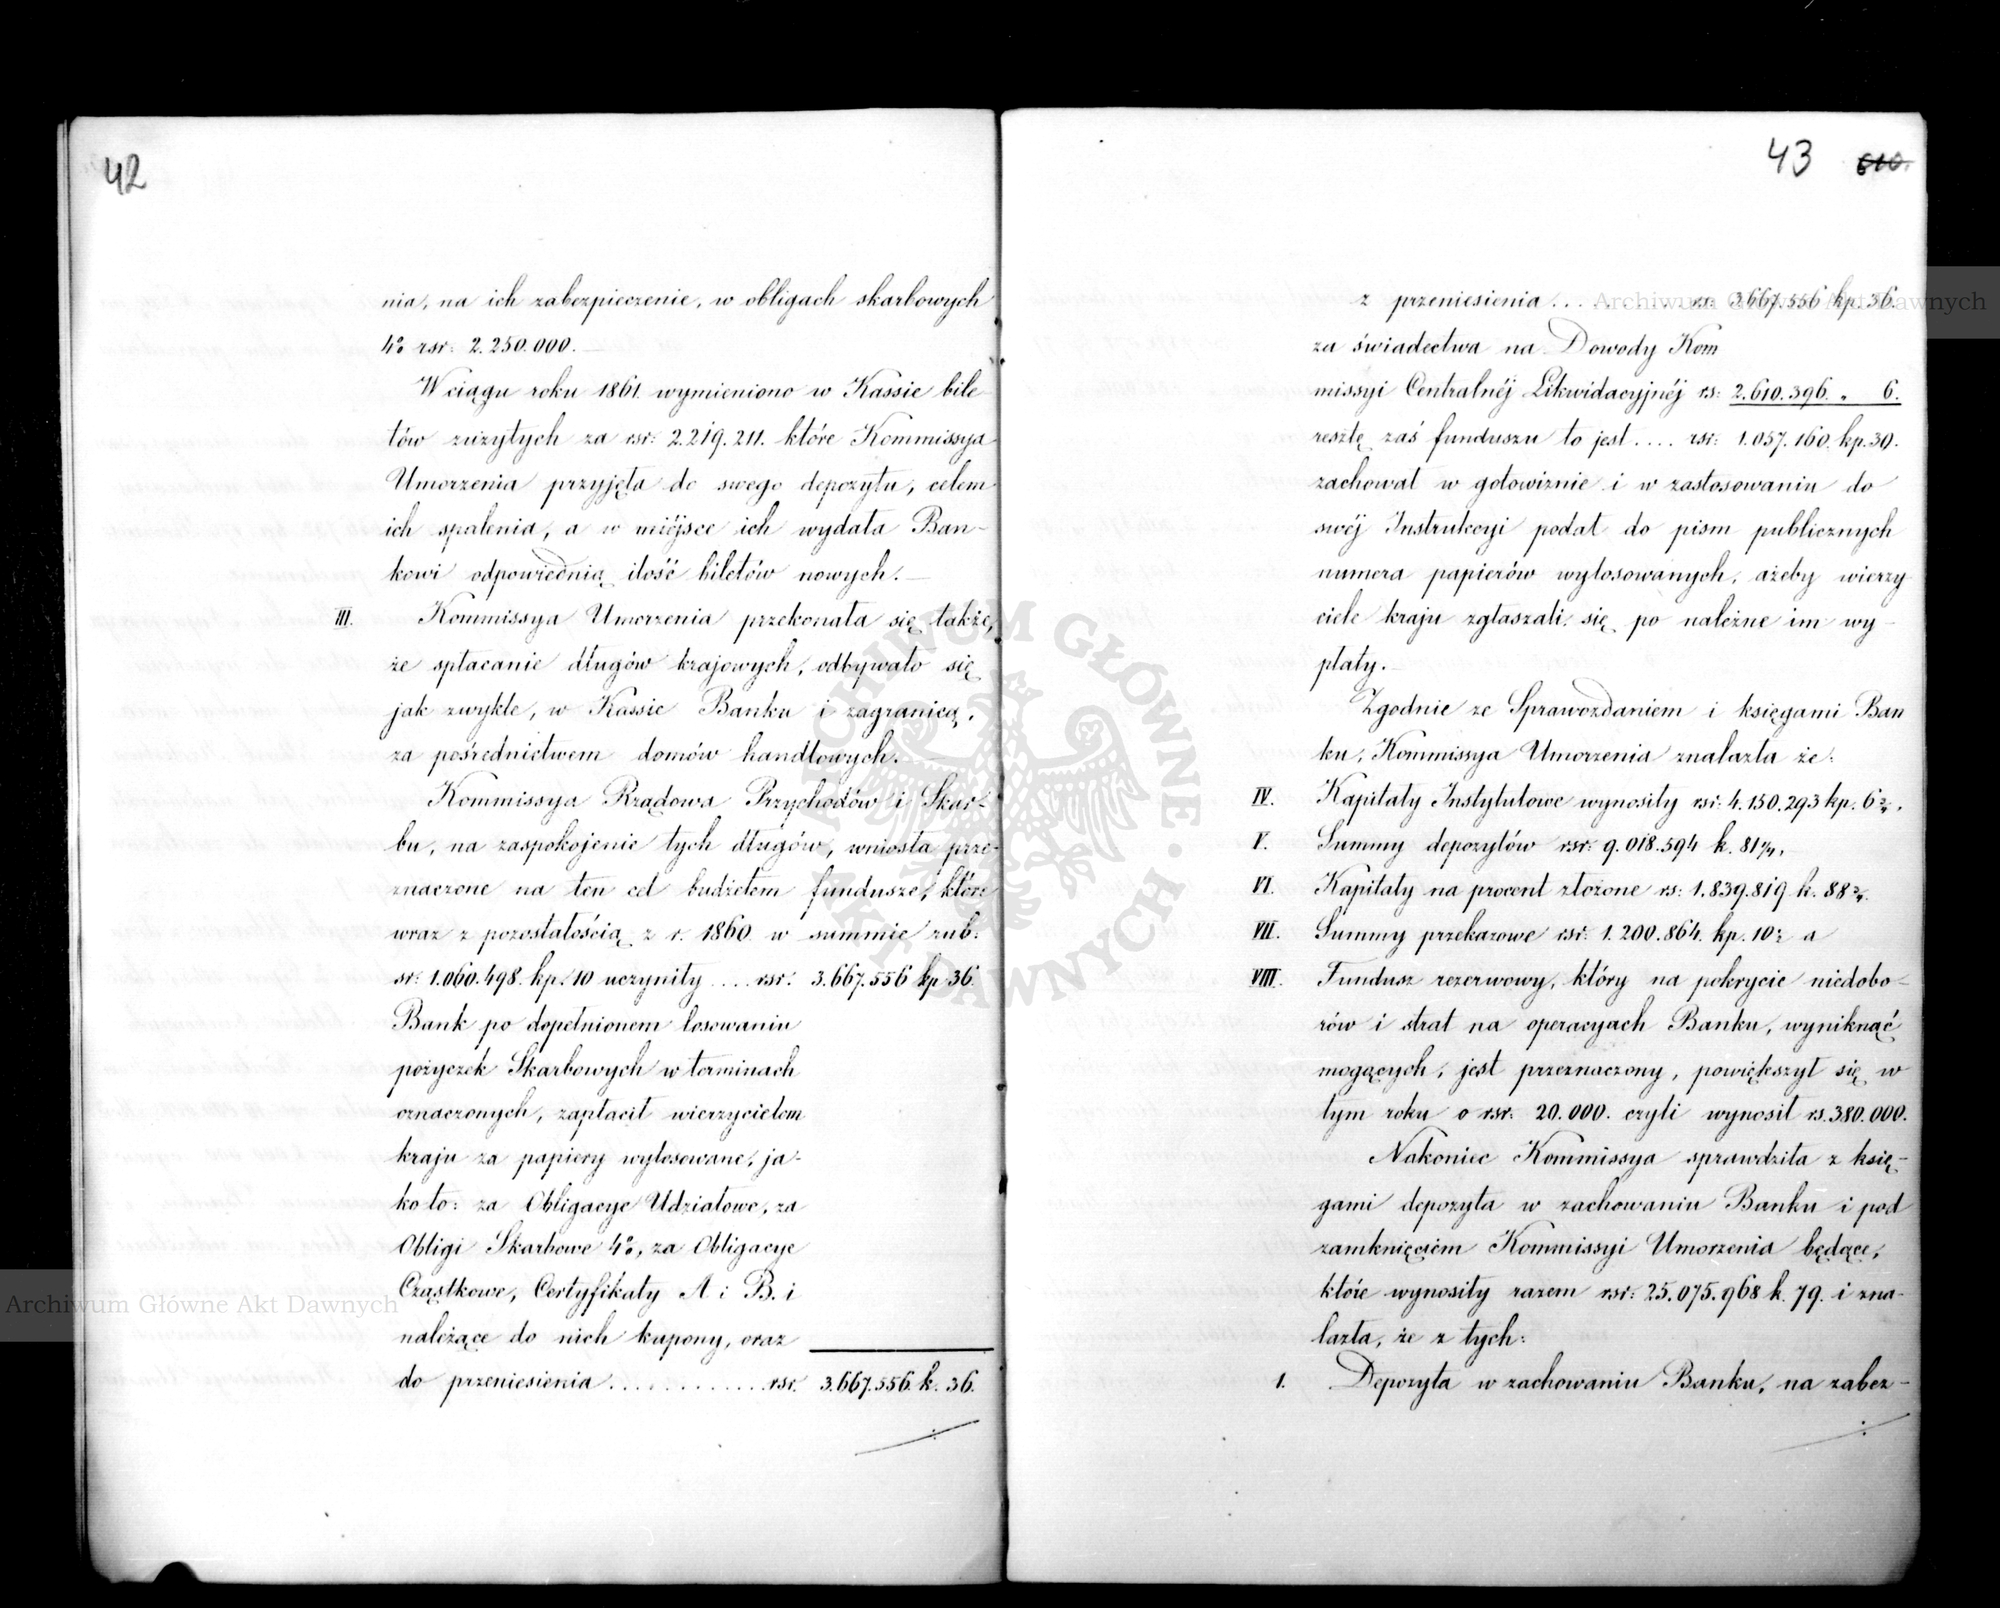 42
nia, na ich zabezpieczenie, w obligach skarbowych
4% rsr: 2.250.000.—
W ciągu roku 1861 wymieniono w Kassie bile-
tów zużytych za rsr: 2.219.211. które Kommissya
Umorzenia przyjęła do swego depozytu, celem
ich spalenia, a w miéjsce ich wydała Ban-
kowi odpowiednią ilość biletów nowych.—
III. Kommissya Umorzenia przekonała się także,
że spłacanie długów krajowych, odbywało się
jak zwykle, w Kassie Banku i zagranicą,
za pośrednictwem domów handlowych.—
Kommissya Rządowa Przychodów i Skar-
bu, na zaspokojenie tych długów, wniosła prze-
znaczone na ten cel budżetem fundusze, które
wraz z pozostałością z r. 1860 w summie rub:
sr: 1.060.498 kp. 10 uczyniły .... rsr: 3.667.556 kp 36.
Bank po dopełnionem losowaniu
pożyczek Skarbowych w terminach
oznaczonych, zapłacił wierzycielom
kraju za papiery wylosowane, ja-
ko to: za Obligacye Udziałowe, za
Obligi Skarbowe 4%, za Obligacye
Cząstkowe, Certyfikaty A i B. i
należące do nich kupony, oraz
do przeniesienia ............. rsr. 3.667.556 k. 36.
43 610.
z przeniesienia .... rs: 3.667.556 kp. 36.
za świadectwa na Dowody Kom
missyi Centralnéj Likwidacyjnéj rs: 2.610.396. „ 6.
resztę zaś funduszu to jest .... rsr: 1.057.160. kp. 30.
zachował w gotowiźnie i w zastosowaniu do
swéj Instrukcyi podał do pism publicznych
numera papierów wylosowanych, ażeby wierzy
ciele kraju zgłaszali się po należne im wy-
płaty.—
Zgodnie ze Sprawozdaniem i księgami Ban
ku, Kommissya Umorzenia znalazła że:
IV. Kapitały Instytutowe wynosiły rsr: 4.150.293 kp. 6
V. Summy depozytów rsr: 9.018.594 k. 81
VI. Kapitały na procent złożone rs: 1.839.819 k. 88
VII. Summy przekazowe rsr: 1.200.864. kp. 10 a
VIII. Fundusz rezerwowy, który na pokrycie niedobo-
rów i strat na operacyach Banku, wyniknąć
mogących, jest przeznaczony, powiększył się w
tym roku o rsr: 20.000. czyli wynosił rs. 380.000.
Nakoniec Kommissya sprawdziła z księ-
gami depozyta w zachowaniu Banku i pod
zamknięciem Kommissyi Umorzenia będące,
które wynosiły razem rsr: 25.075.968 k. 79. i zna-
lazła, że z tych:
1. Depozyta w zachowaniu Banku, na zabez-
Archiwum Główne Akt Dawnych
Archiwum Główne Akt Dawnych
ARCHIWUM GŁÓWNE AKT DAWNYCH